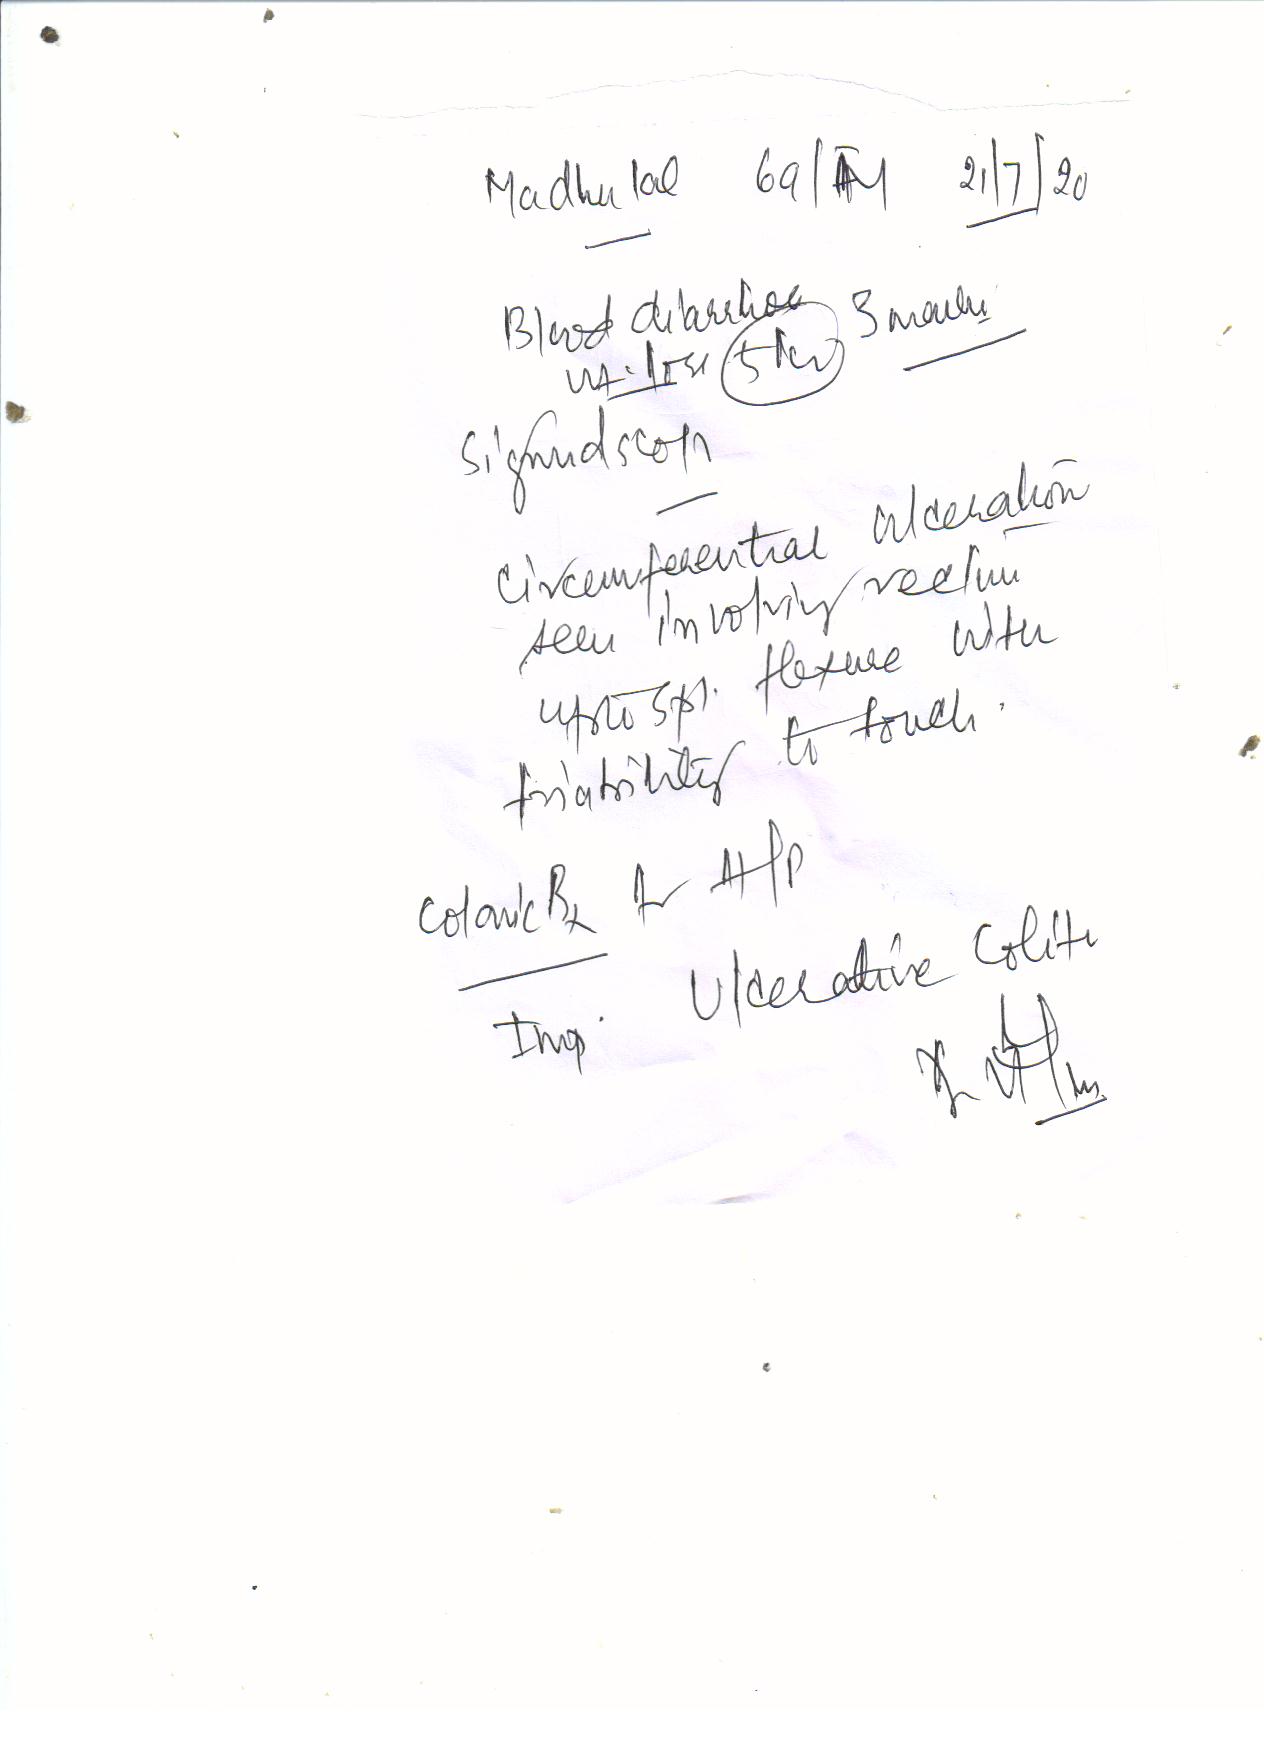 Madhulal 69/M 21/7/20
Blood diarrhoea 3 months
wt. loss 5 kg
Sigmoidscopy
Circumferential ulceration
seen involving rectum
upto spl. flexure with
friability to touch.
Colonic Bx for H/P
Imp. Ulcerative Colitis